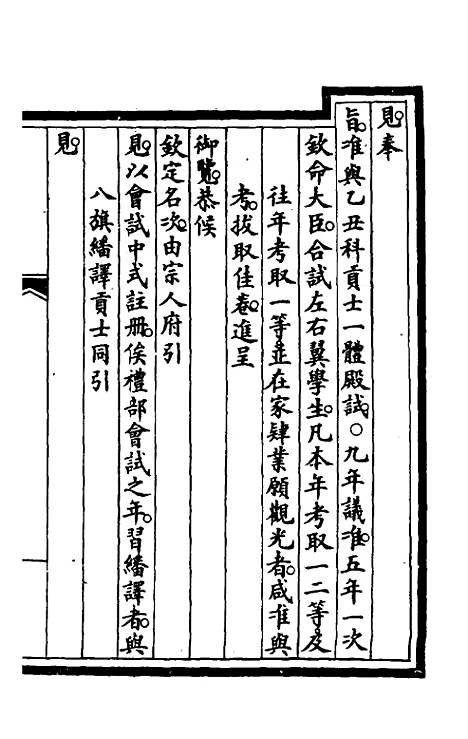 見奉
旨准與乙丑科貢士一體殿試○九年議准五年一次
欽命大臣合試左右翼學生凡本年考取一二等及
往年考取一等並在家肄業願觀光者咸准與
考拔取佳卷進呈
御覽恭候
欽定名次由宗人府引
見以會試中式註冊俟禮部會試之年習繙譯者與
八旗繙譯貢士同引
見